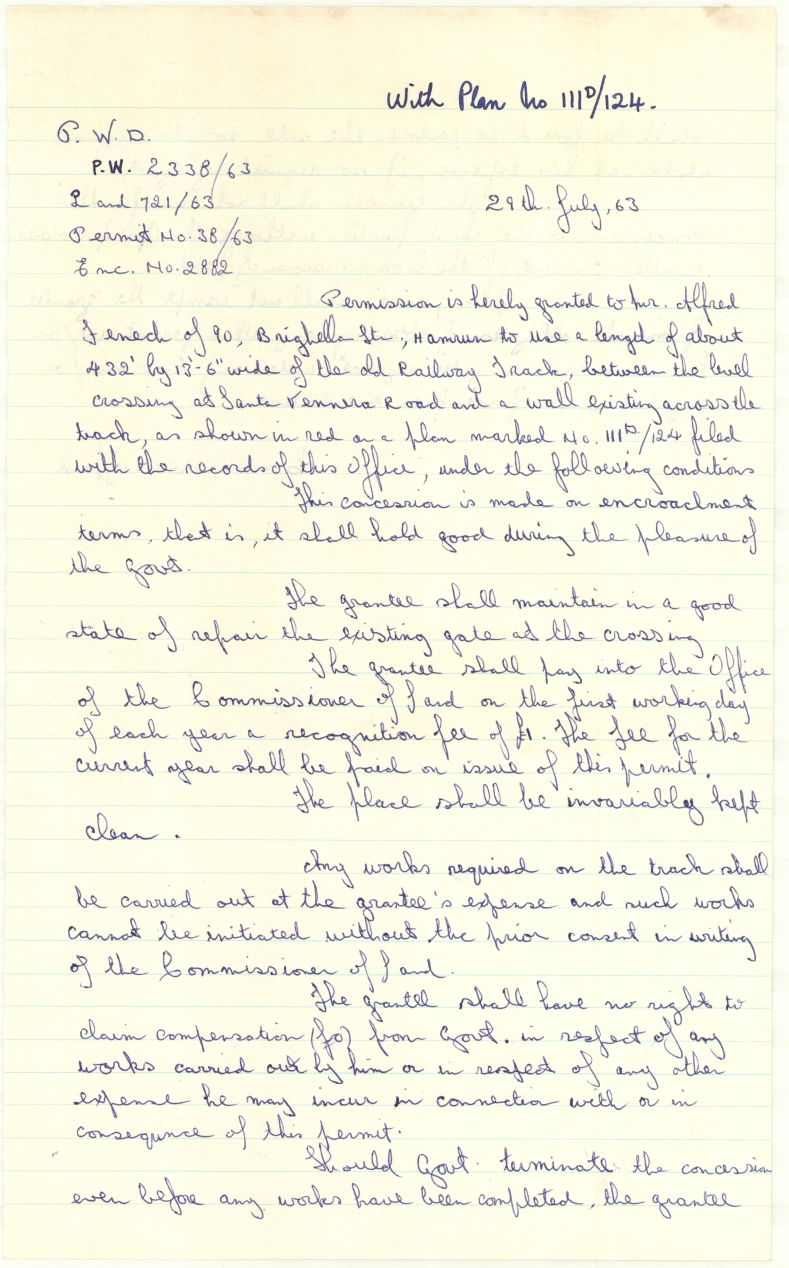 With Plan No 111D/124.
P. W. D.
P.W. 2338/63
Land 721/63
29th. July, 63
Permit No. 38/63
Enc. No. 2882
Permission is hereby granted to Mr. Alfred
Fenech of 90, Brighella Str., Hamrun to use a length of about
432' by 13'-6" wide of the old Railway Track, between the level
crossing at Santa Vennera Road and a wall existing across the
track, as shown in red on a plan marked No. 111D/124 filed
with the records of this Office, under the following conditions
This concession is made on encroachment
terms, that is, it shall hold good during the pleasure of
the Govt.
The grantee shall maintain in a good
state of repair the existing gate at the crossing
The grantee shall pay into the Office
of the Commissioner of Land on the first working day
of each year a recognition fee of £1. The fee for the
current year shall be paid on issue of this permit.
The place shall be invariably kept
clean.
Any works required on the track shall
be carried out at the grantee's expense and such works
cannot be initiated without the prior consent in writing
of the Commissioner of Land.
The grantee shall have no right to
claim compensation (fo) from Govt. in respect of any
works carried out by him or in respect of any other
expense he may incur in connection with or in
consequnce of this permit.
Should Govt. terminate the concession
even before any works have been completed, the grantee